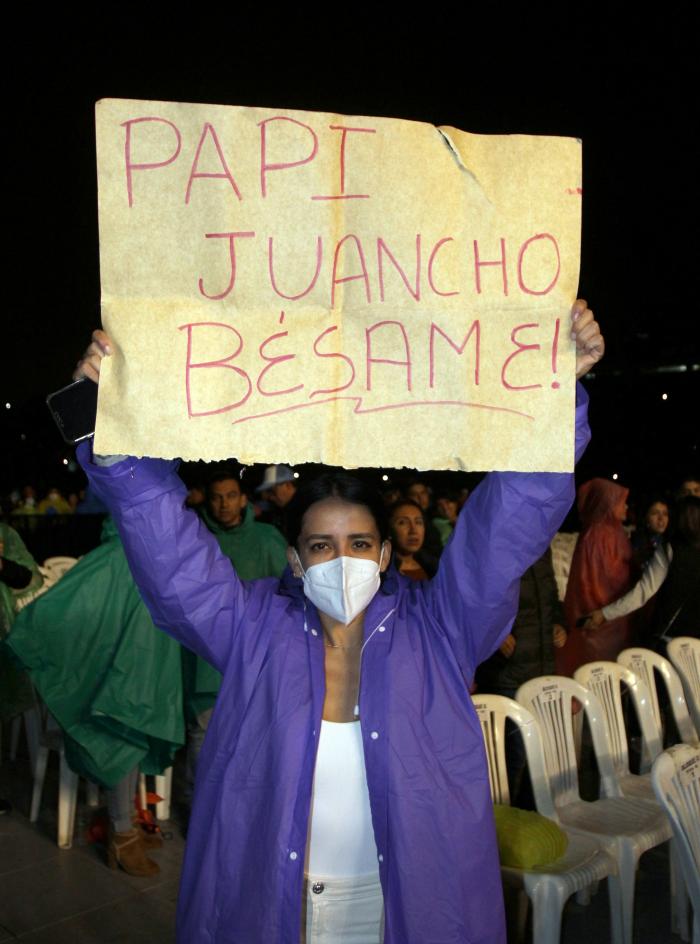 PAPI
JUANCHO
BÉSAME!